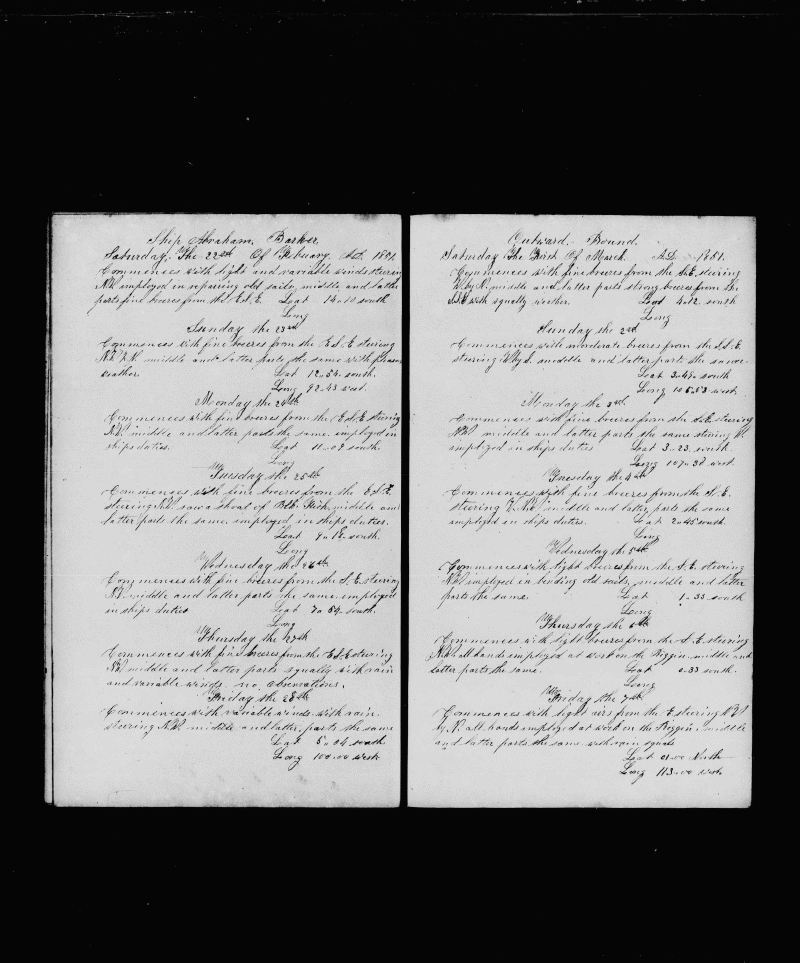 Ship Abraham Barker
Saturday The 22nd Of Febuary A.D. 1851
Commences with light and variable winds steering
N.W. employed in repairing old sails, middle and latter
parts fine breeses from the E.S.E. Laat 14-10 south
Long
Sunday the 23rd
Commences with fine breeses from the E.S.E. steering
middle and latter parts the same with
weather Lat 12-54 south.
Long 92-43 west.
Monday the 24th
Commences with fine breeses from the E.S.E steering
N.W. middle and latter parts the same. employed in
ships duties. Laat 11-09 south.
Long
Tuesday the 25th
Commences with fine breeses from the E.S.E.
steering N.W. saw a shoal of middle and
latter parts the same. employed in ships duties.
Laat south.
Long
Wednesday the 26th
Commences with fine breeses from the S.E. steering
N.W. middle and latter parts the same. employed
in ships duties Laat 7-54 south.
Long
Thursday the 27th
Commences with fine breeses from the E.S.E steering
N.W. middle and latter parts squally with rain
and variable winds, no observations.
Friday the 28th
Commences with variable winds with rain.
steering N.W. middle and latter parts the same
Lat 5-04 south
Long 100-00 west
Outward Bound.
Saturday The First Of March. A.D. 1851.
Commences with fine breeses from the S.E. steering
W. by N. middle and latter parts strong breeses from the
S.S.E with squally weather. Laat 4-12 south
Long
Sunday the 2nd
Commences with moderate breeses from the S.S.E
steering W. by S. middle and latter parts the same.
Laat 3-49 south
Long 105-53 west
Monday the 3rd
Commences with fine breeses from the S.E. steering
middle and latter parts the same steering W.
employed in ships duties Laat 3-23 south.
Long 107-38 west.
Tuesday the 4th
Commences with fine breeses from the S.E.
steering middle and latter parts the same
employed in ships duties. Lat 2-45 south
Long
Wednesday the 5th
Commences with light breeses from the S.E. steering
N.W. employed in bending old sails, middle and latter
parts the same. Lat 1-33 south
Long
Thursday the 6th
Commences with light breeses from the S.E. steering
N.W. all hands employed at work on the Riggin. middle and
latter parts the same. Laat 0-33 south.
Long
Friday the 7th
Commences with light airs from the E steering N.W
by N. all hands employed at work on the Riggin. middle
and latter parts the same with rain squals
Laat 01-00 North
Long 113-00 west